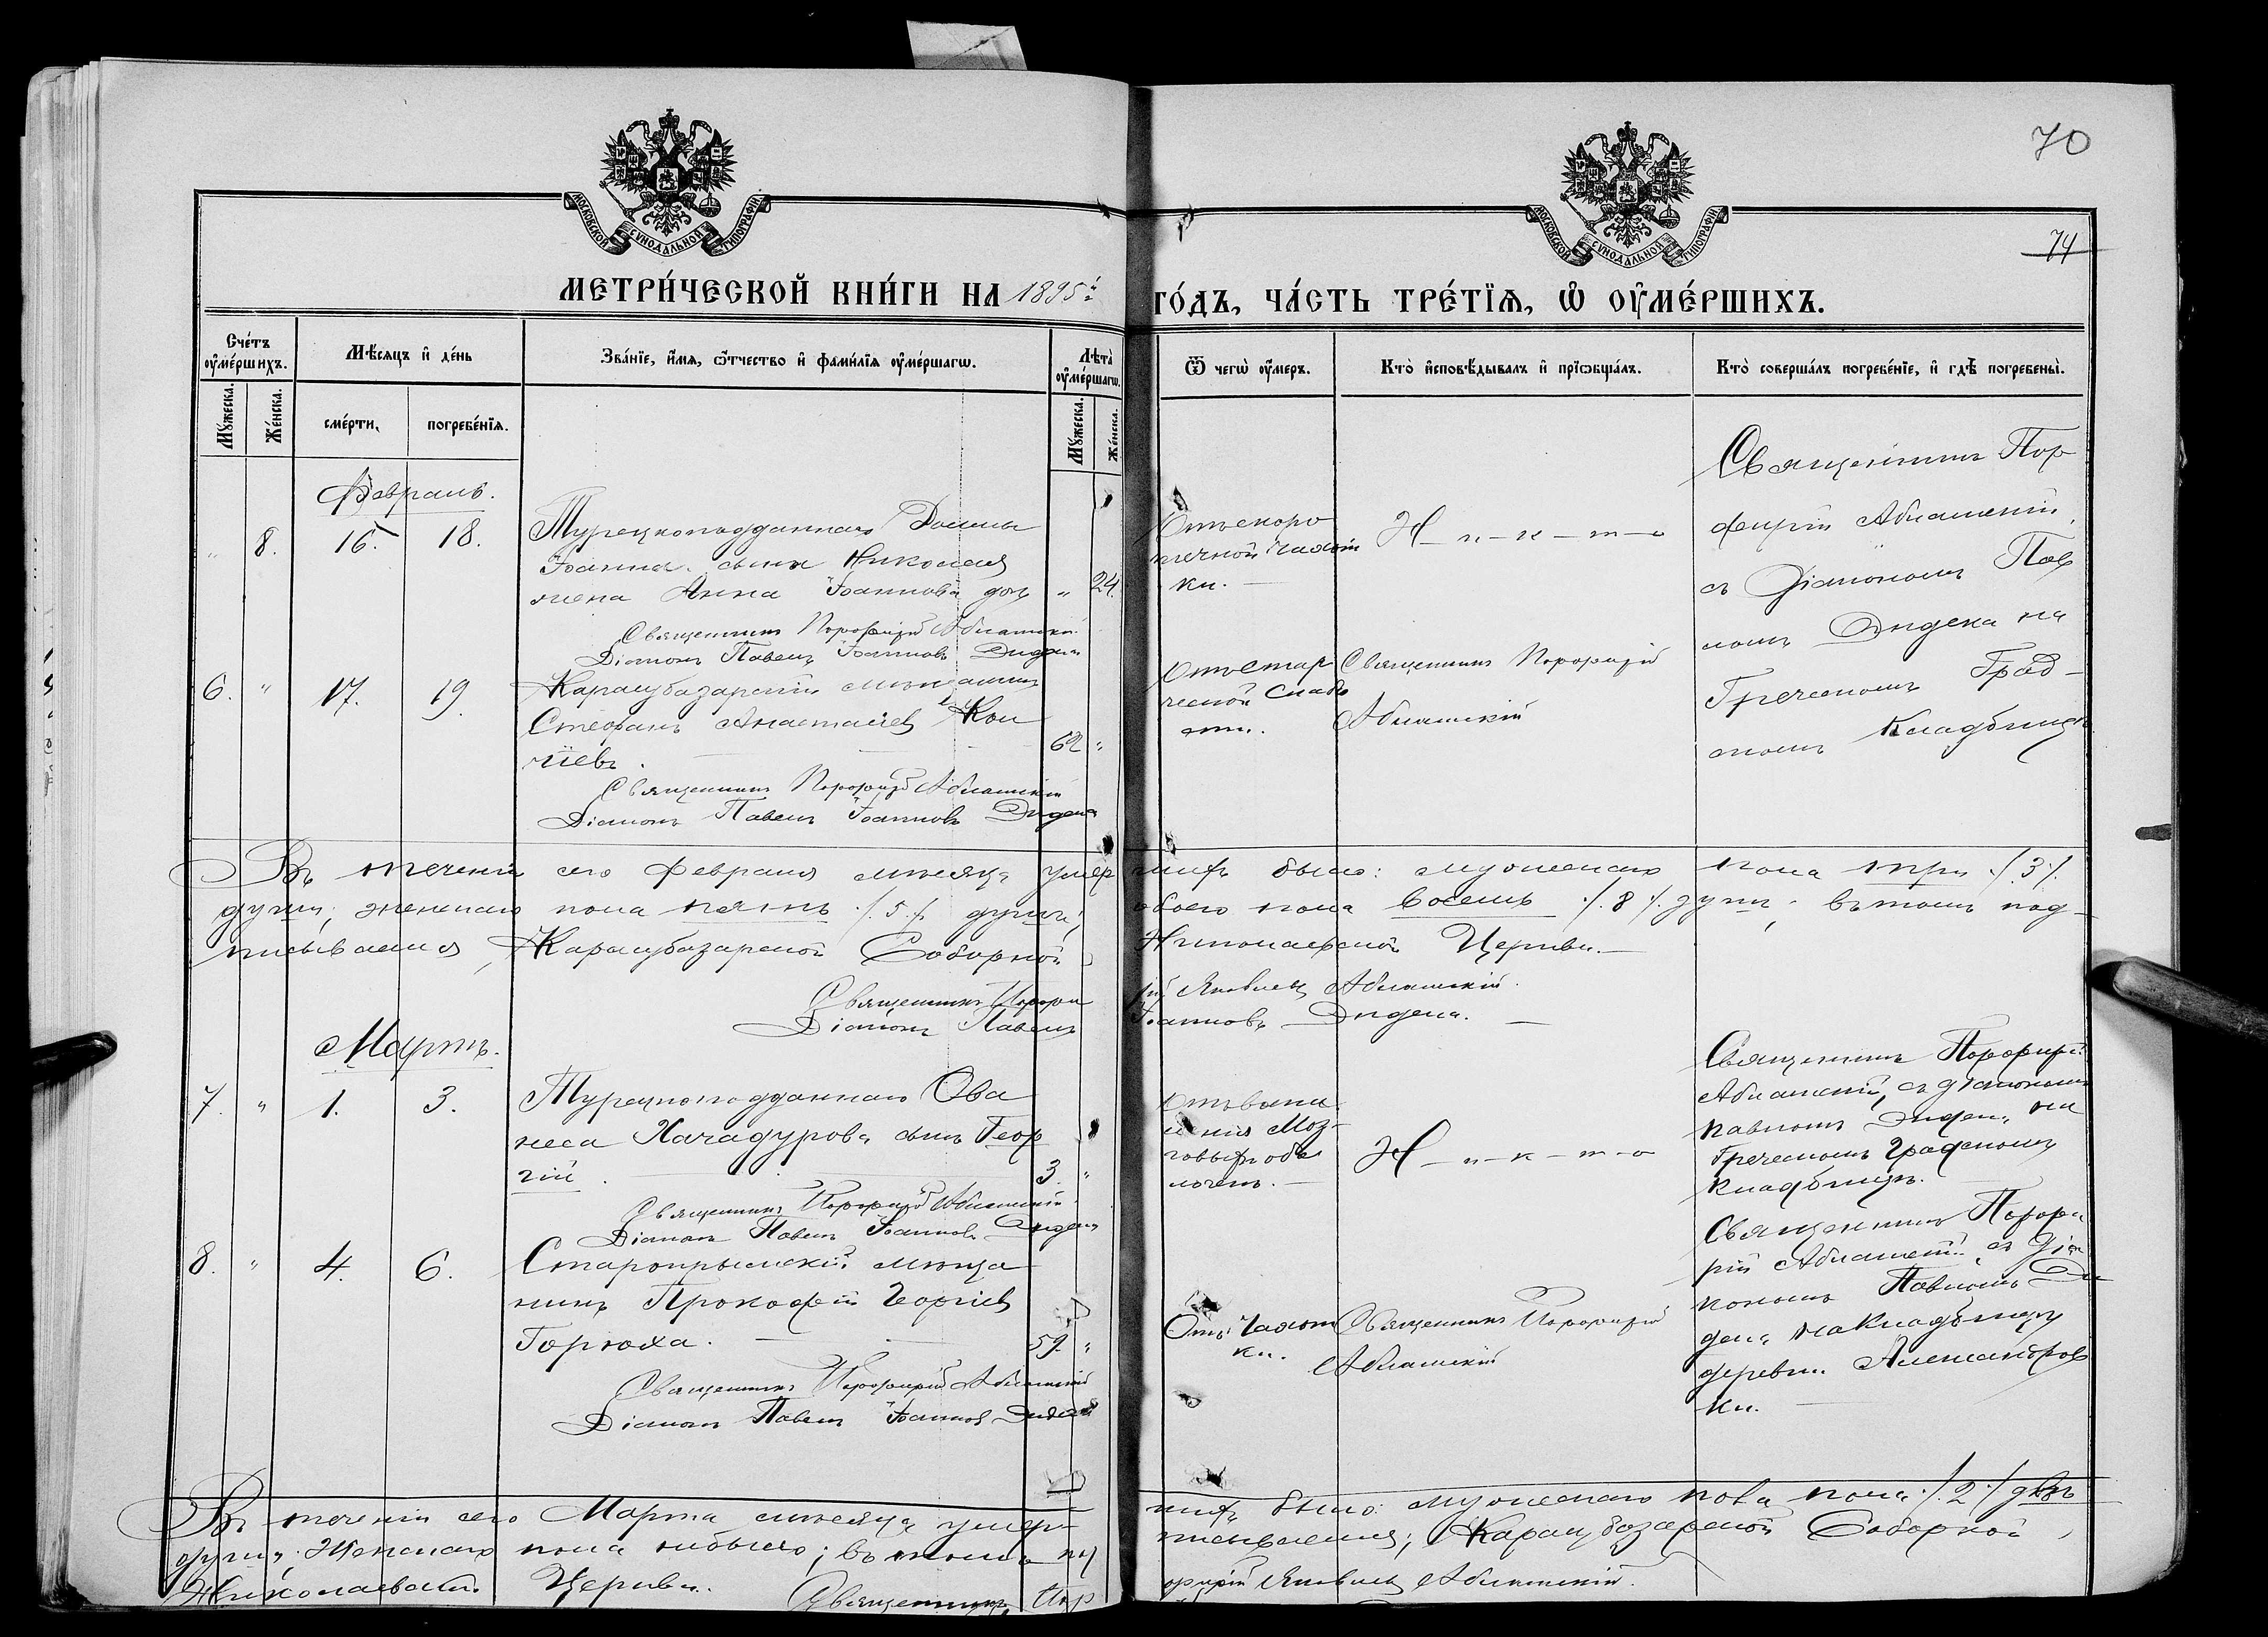 70
74
МОСКОВСКОЙ СѴНОДАЛЬНОЙ ТИПОГРАФІИ
МОСКОВСКОЙ СѴНОДАЛЬНОЙ ТИПОГРАФІИ
МЕТРИ́ЧЕСКОЙ КНИ́ГИ НА 1895й ГО́ДЪ, ЧА́СТЬ ТРЕ́ТІѦ, Ѡ ОУМЕ́РШИХЪ.
Сче́тъ оуме́ршихъ.
Мꙋ́жеска.
Же́нска.
Мѣ́сяцъ и де́нь
сме́рти,
погребе́нїѧ.
Зва́нїе, и́мѧ, ѻ҆́тчество и фами́лїѧ оуме́ршагѡ.
Лѣта̀ оуме́ршагѡ.
Мꙋ́жеска.
Же́нска.
Ѿ чегѡ̀ оу́меръ.
Кто̀ и҆сповѣ́дывалъ и прїѡбща́лъ.
Кто̀ соверша́лъ погребе́нїе, и гдѣ̀ погребены̀.
Февраль.
" 8. 16. 18.
Турецкоподданнаго
Іоанна сына Николая
жена Анна Іоаннова дочь " 24.
Священникъ Порфирій Абламскій
Діаконъ Павелъ Іоанновъ Дидена
Отъ скоро
течной чахот
ки.
Н-и-к-т-о
Священникъ Пор
фирій Абламскій,
съ Діакономъ Пав
ломъ Дидена на
Греческомъ Град-
скомъ Кладбищѣ
6. " 17. 19.
Карасубазарскій мѣщанинъ
Стефанъ Анастасіев
62 "
Священникъ Порфирій Абламскій
Діаконъ Павелъ Іоанновъ Дидена
Отъ Старо
ческой Слабо
сти.
Священникъ Порфирій
Абламскій
Въ теченіи сего Февраля мѣсяца умер
шихъ было: мужескаго пола три /.3./
души, женскаго пола пять /.5./ душъ,
обоего пола восемь /.8./ душъ; въ томъ под-
писываемся, Карасубазарской Соборной
Николаевской Церкви.
Священникъ Порфи
рій Яковлевъ Абламскій.
Діаконъ Павелъ
Іоанновъ Дидена.
Мартъ.
7. " 1. 3.
Турецкоподданнаго Ова
неса Хачадурова сынъ Геор
гій. 3. "
Священникъ Порфирій Абламскій
Діаконъ Павелъ Іоанновъ Дидена
Отъ воспа
ленія Моз-
говыхъ обо
лочекъ.
Н-и-к-т-о
Священникъ Порфирій
Абламскій, съ діакономъ
Павломъ Дидена, на
Греческомъ Градскомъ
Кладбищѣ.
8. " 4. 6.
Старокрымскій мѣща
нинъ Прокофій Георгіев
Горюха. 59. "
Священникъ Порфирій Абламскій
Діаконъ Павелъ Іоаннов Дидена
Отъ Чахот
ки.
Священникъ Порфирій
Абламскій
Священникъ Порфи
рій Абламскій съ Діа
кономъ Павломъ Ди
дена на Кладбищѣ
деревни Александров
ки.
Въ теченіи сего Марта мѣсяца умер-
шихъ было: мужескаго пола пола /.2./ двѣ
души, Женскаго пола небыло; въ томъ под
писываемся; Карасубазарской Соборной
Николаевской Церкви.
Священникъ Пор
фирій Яковлев Абламскій.